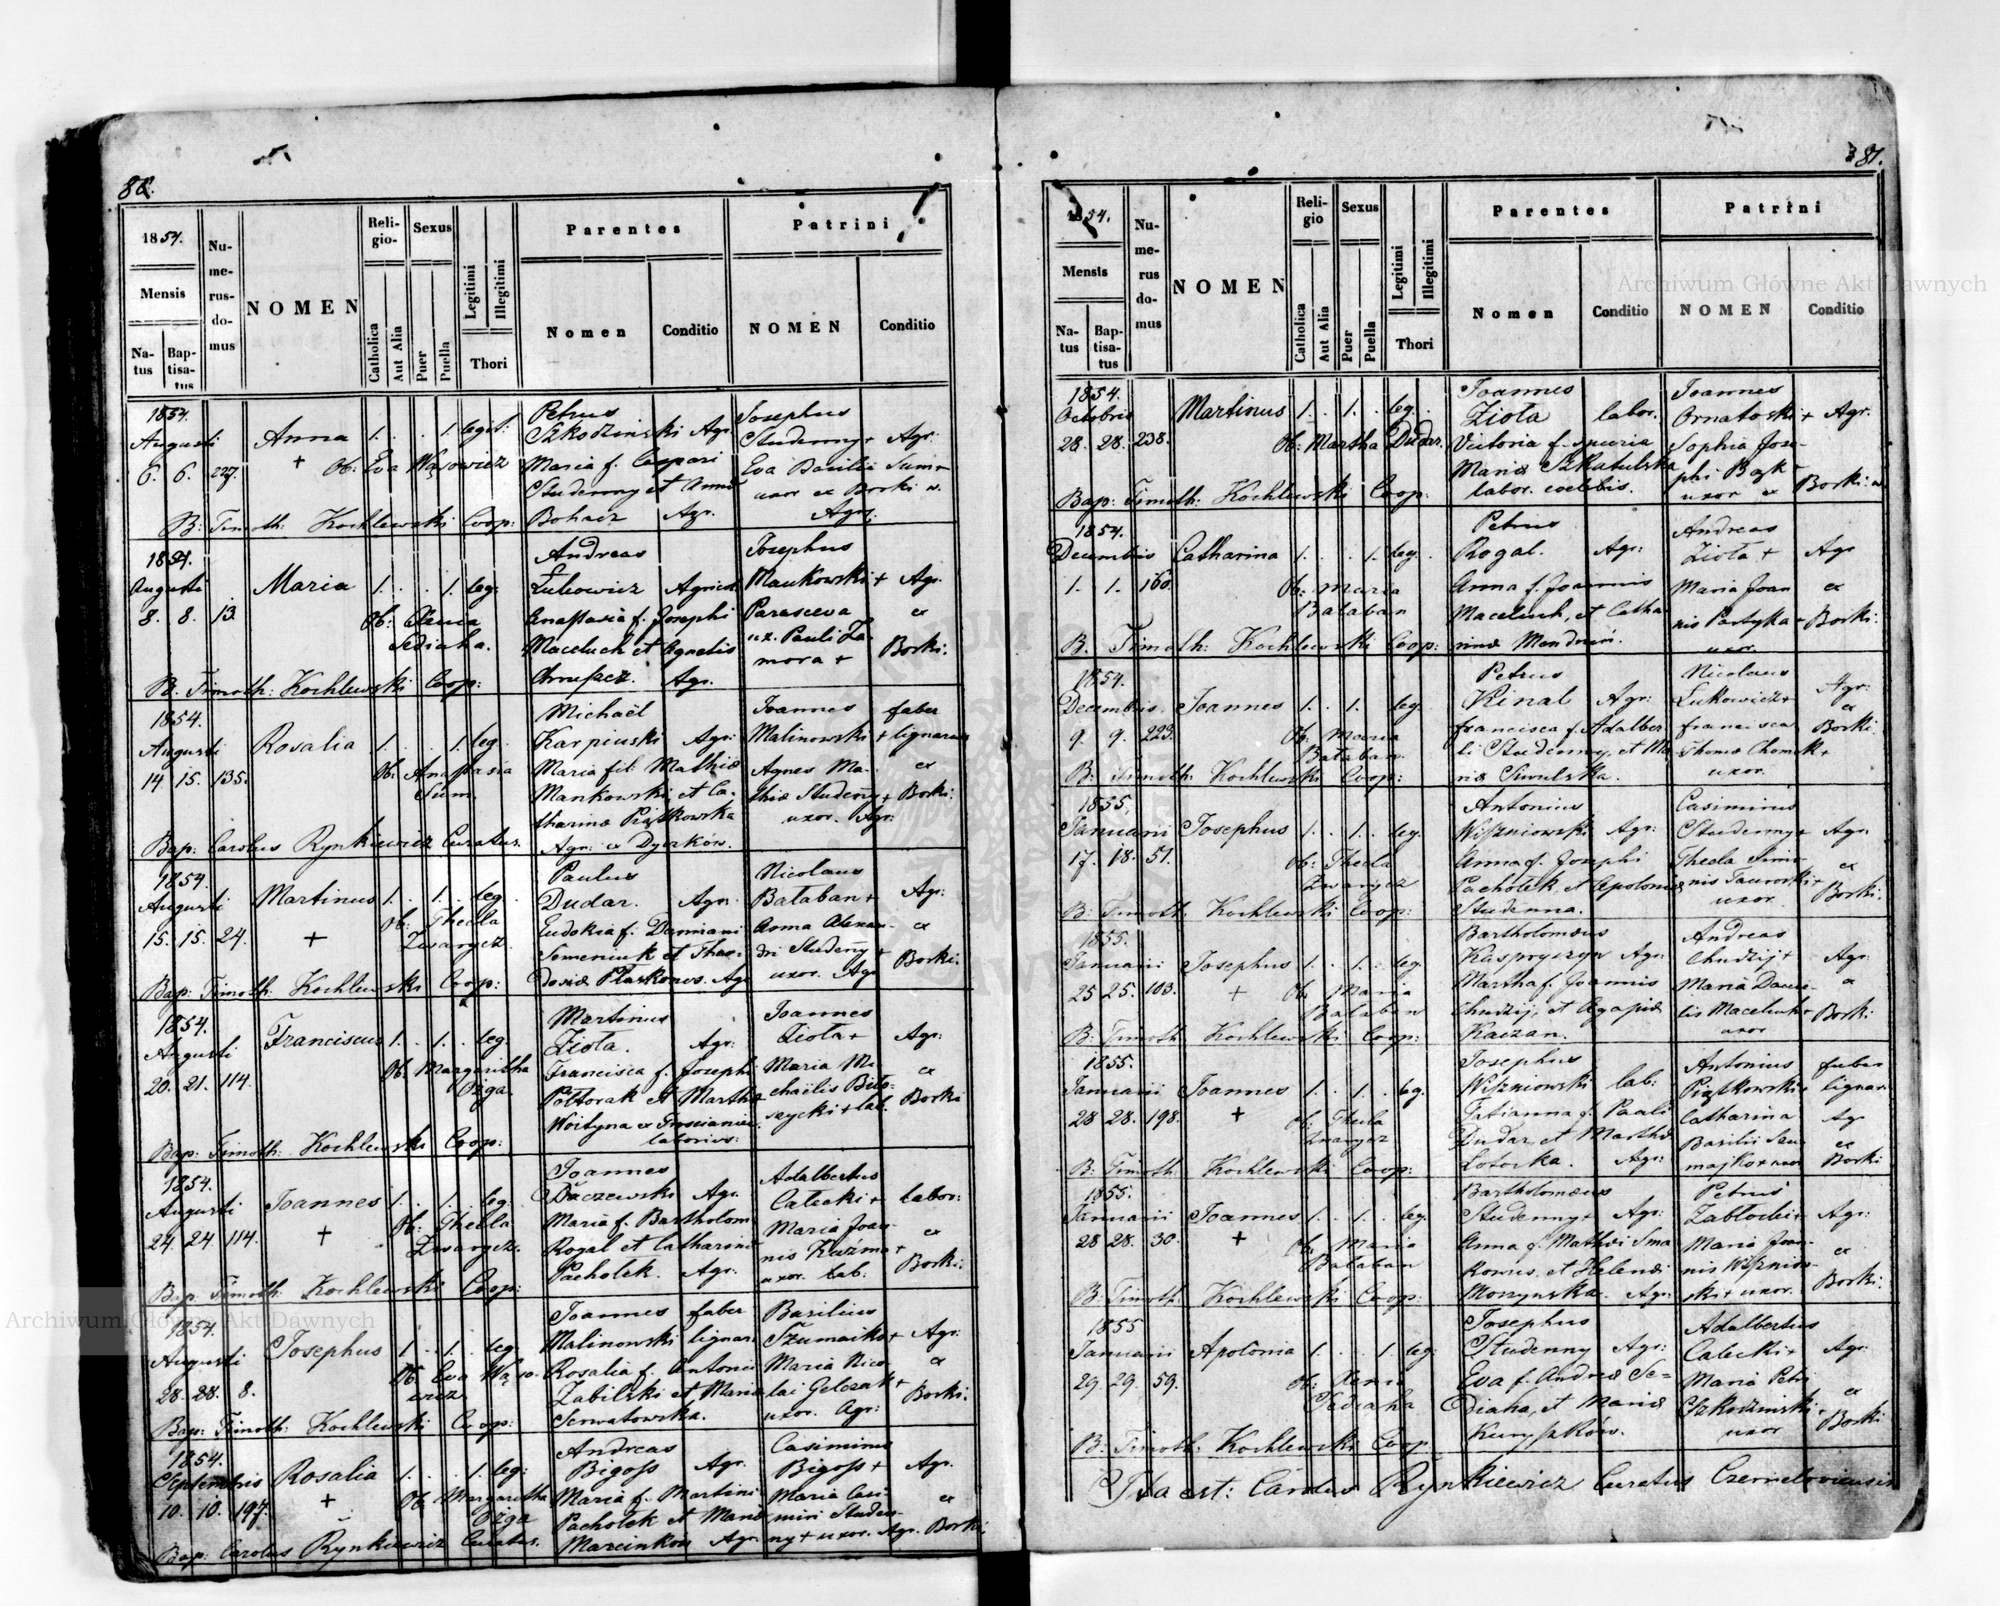 86.
1854.
Mensis
Na-
tus
Bap-
tisa-
tus
Nu-
me-
rus-
do-
mus
NOMEN
Reli-
gio-
Catholica
Aut Alia
Sexus
Puer
Puella
Legitimi
Illegitimi
Thori
Parentes
Nomen
Conditio
Patrini
NOMEN
Conditio
1854.
Augusti
6. 6. 227.
Anna 1. . . 1. legit:
+ Ob: Eva Wąsowicz
Petrus
Szkodzinski Agr.
Maria f. Caspari
Studenny et Anna
Bohacz Agr.
Josephus
Studenny + Agr:
Eva Basilii Sum-
uxor ex Borki w.
Agr:
B: Timoth: Kochlewski Coop:
1854.
Augusti
8. 8. 13.
Maria 1. . . 1. leg:
Ob:
Sediaha.
Andreas
Łukowicz
Anastasia f. Josephi
Maceluch et Agnetis
Agr.
Josephus
Mankowski + Agr.
Parasceva ex
ux. Pauli Za-
mora + Borki:
B. Timoth: Kochlewski Coop:
1854.
Augusti
14 15. 135.
Rosalia 1. . . 1. leg.
Ob: Anastasia
Sum.
Michaël
Karpinski Agr:
Maria fil: Mathiæ
Mankowski, et Ca-
tharinæ Piątkowska
Agr: ex Dyczków.
Joannes faber
Malinowski + lignarius
Agnes Ma- ex
thiæ Studeny + Borki:
uxor. Agr:
Bap: Carolus Rynkiewicz Curatus.
1854.
Augusti
15. 15. 24.
Martinus 1. . 1. . leg.
+ Ob: Thecla
Zwarycz.
Paulus
Dudar. Agr:
Eudokia f. Damiani
Semeniuk et Theo-
dosiæ Ptaskonos. Agr
Nicolaus
Bataban + Agr:
Anna Alexan- ex
dri Studeny + Borki:
uxor. Agr
Bap: Timoth: Kochlewski Coop:
1854.
Augusti
20. 21. 114.
Franciscus 1. . 1. . leg.
Ob: Margaritha
Ożga.
Martinus
Ziota. Agr:
Francisca f. Josephi
Połtorak et Martha
Woityna ex
Joannes
Ziota + Agr:
Maria Mi- ex
chaëlis
+ lab. Borki
Bap: Timoth: Kochlewski Coop:
1854.
Augusti
24. 24. 114.
Joannes 1. . 1. . leg.
+ Ob: Thecla
Zwarycz.
Joannes
Daczewski Agr.
Maria f. Bartholom
Rogal et Catharinæ
Pacholek. Agr.
Adalbertus
Calecki + labor:
Maria Joan- ex
nis Kuźma +
uxor. lab. Borki:
Bap: Timoth: Kochlewski Coop:
1854.
Augusti
28. 28. 8.
Josephus 1. . 1. . leg.
Ob: Eva Wąso-
wicz
Joannes faber
Malinowski lignar:
Rosalia f. Antonii
Zabilski et Mariæ
Serwatowska.
Basilius
Szumaiko + Agr:
Maria Nico- ex
lai Gelezak +
uxor. Agr: Borki:
Bap: Timoth: Kochlewski Coop:
1854.
Septembris
10. 10. 197.
Rosalia 1. . . 1. leg:
+ Ob: Margaritha
Ożga
Andreas
Bigoss Agr.
Maria f. Martini
Pacholek et Mariæ
Marcinkow Agr.
Casimirus
Bigoss + Agr.
Maria Casi- ex
miri Studen-
ny + uxor. Agr. Borki
Bap: Carolus Rynkiewicz Curatus.
81.
1854.
Mensis
Na-
tus
Bap-
tisa-
tus
Nu-
me-
rus
do-
mus
NOMEN
Reli-
gio
Catholica
Aut Alia
Sexus
Puer
Puella
Legitimi
Illegitimi
Thori
Parentes
Nomen
Conditio
Patrini
NOMEN
Conditio
1854.
Octobris
28. 28. 238.
Martinus 1. . 1. . leg.
Ob: Martha Dudar.
Joannes
Ziota labor.
Victoria f. spuria
Mariæ Szkatulska
labor. coelebis.
Joannes
Ornatoski + Agr.
Sophia Jose-
phi Bąk +
uxor ex Borki: w
Bap: Timoth: Kochlewski Coop:
1854.
Decembris
1. 1. 160.
Catharina 1. . . 1. leg.
Ob: Maria
Bataban
Petrus
Rogal. Agr:
Anna f. Joannis
Maceluch, et Catha-
rinæ
Andreas
Ziota + Agr
Maria Joan ex
nis Partyka + Borki:
uxor.
B. Timoth: Kochlewski Coop:
1854.
Decembris
9. 9. 223.
Joannes 1. . 1. . leg.
Ob: Maria
Bataban
Petrus
Kinal Agr:
Francisca f. Adalber
ti Studenny, et Ma
riæ Siwulska.
Nicolaus
Łukowicz + Agr:
Francisca ex
Thomæ Chomik + Borki:
uxor.
B: Timoth: Kochlewski Coop:
1855.
Januarii
17. 18. 51.
Josephus 1. . 1. . leg.
Ob: Thecla
Zwarycz
Antonius
Wiszniowski Agr:
Anna f. Josephi
Pacholek, et Apoloniæ
Studenna.
Casimirus
Studenny + Agr.
Thecla Simo- ex
nis Taworski + Borki:
uxor
B: Timoth: Kochlewski Coop:
1855.
Januarii
25 25. 103.
Josephus 1. . 1. . leg.
+ Ob: Maria
Bataban
Bartholomæus
Kaspryszyn Agr.
Martha f. Joannis
Chudzij, et Agapiæ
Kaczan.
Andreas
Chudzij + Agr.
Maria Danie- ex
lis Maceluch + Borki:
uxor
B: Timoth: Kochlewski Coop:
1855.
Januarii
28 28. 198.
Joannes 1. . 1. . leg.
+ Ob: Thecla
Zwarycz
Josephus
Wiszniowski lab:
Tatianna f. Pauli
Dudar, et Marthæ
Łotocka. Agr:
Antonius faber
Piątkowski + lignar
Catharina Agr
Basilii Szu- ex
majko + uxor Borki
B: Timoth: Kochlewski Coop:
1855.
Januarii
28 28. 30.
Joannes 1. . 1. . leg.
+ Ob: Maria
Bataban
Bartholomæus
Studenny + Agr:
Anna f. Mathæi Sma
kowis, et Helenæ
Moszynska. Agr:
Petrus
Zabłocki + Agr:
Maria Joan- ex
nis Wisznios-
ski + uxor. Borki:
B: Timoth: Kochlewski Coop:
1855
Januarii
29. 29. 59.
Apolonia 1. . . 1. leg.
Ob:
Sediaha
Josephus
Studenny Agr:
Eva f. Andreæ Se=
diaha, et Mariæ
Kuryszków.
Adalbertus
Calecki + Agr.
Maria Petri ex
Szkodzinski +
uxor Borki
B: Timoth: Kochlewski Coop
Ita est: Carolus Rynkiewicz Curatus Czerneloviensis
Archiwum Główne Akt Dawnych
Archiwum Główne Akt Dawnych